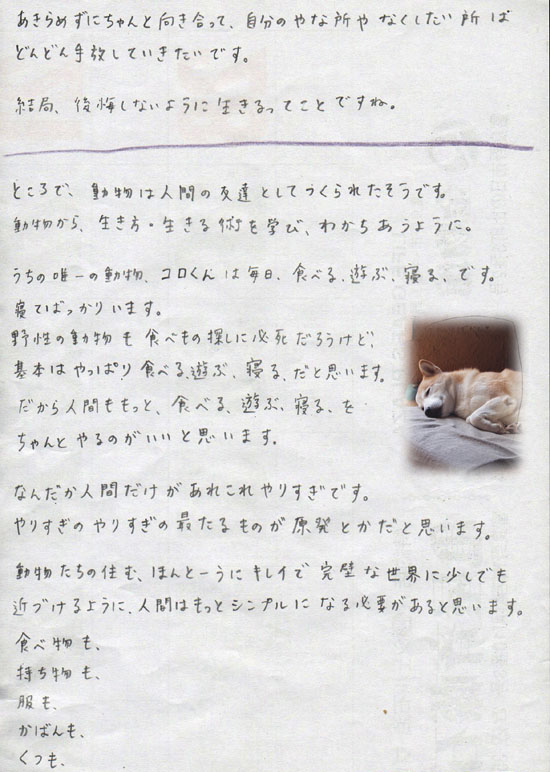 あきらめずにちゃんと向き合って、自分のやな所やなくしたい所は
どんどん手放していきたいです。
結局、後悔しないように生きるってことですね。
ところで、動物は人間の友達としてつくられたそうです。
動物から、生き方・生きる術を学び、わかちあうように。
うちの唯一の動物、コロくんは毎日、食べる、遊ぶ、寝る、です。
寝てばっかりいます。
野性の動物も食べもの探しに必死だろうけど、
基本はやっぱり食べる、遊ぶ、寝る、だと思います。
だから人間ももっと、食べる、遊ぶ、寝る、を
ちゃんとやるのがいいと思います。
なんだか人間だけがあれこれやりすぎです。
やりすぎのやりすぎの最たるものが原発とかだと思います。
動物たちの住む、ほんとーうにキレイで完璧な世界に少しでも
近づけるように、人間はもっとシンプルになる必要があると思います。
食べ物も、
持ち物も、
服も、
かばんも、
くつも、